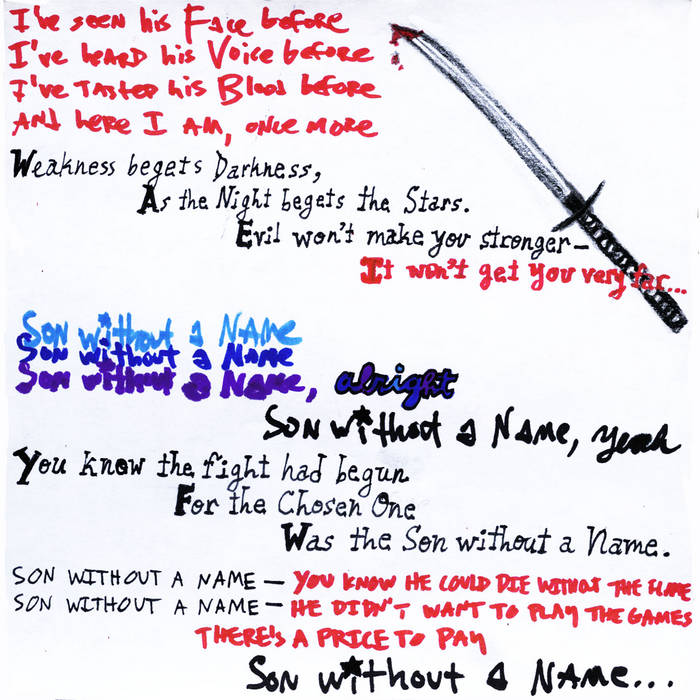 I've seen his Face before
I've heard his Voice before
I've Tasted his Blood before
And here I am, once more
Weakness begets Darkness,
As the Night begets the Stars.
Evil won't make you stronger—
It won't get you very far...
Son without a Name
Son without a Name
Son without a Name, alright
Son without a Name, yeah
You know the fight had begun
For the Chosen One
Was the Son without a Name.
SON WITHOUT A NAME — YOU KNOW HE COULD DIE WITHOUT THE
SON WITHOUT A NAME — HE DIDN'T WANT TO PLAY THE GAMES
THERE'S A PRICE TO PAY
Son without a Name...